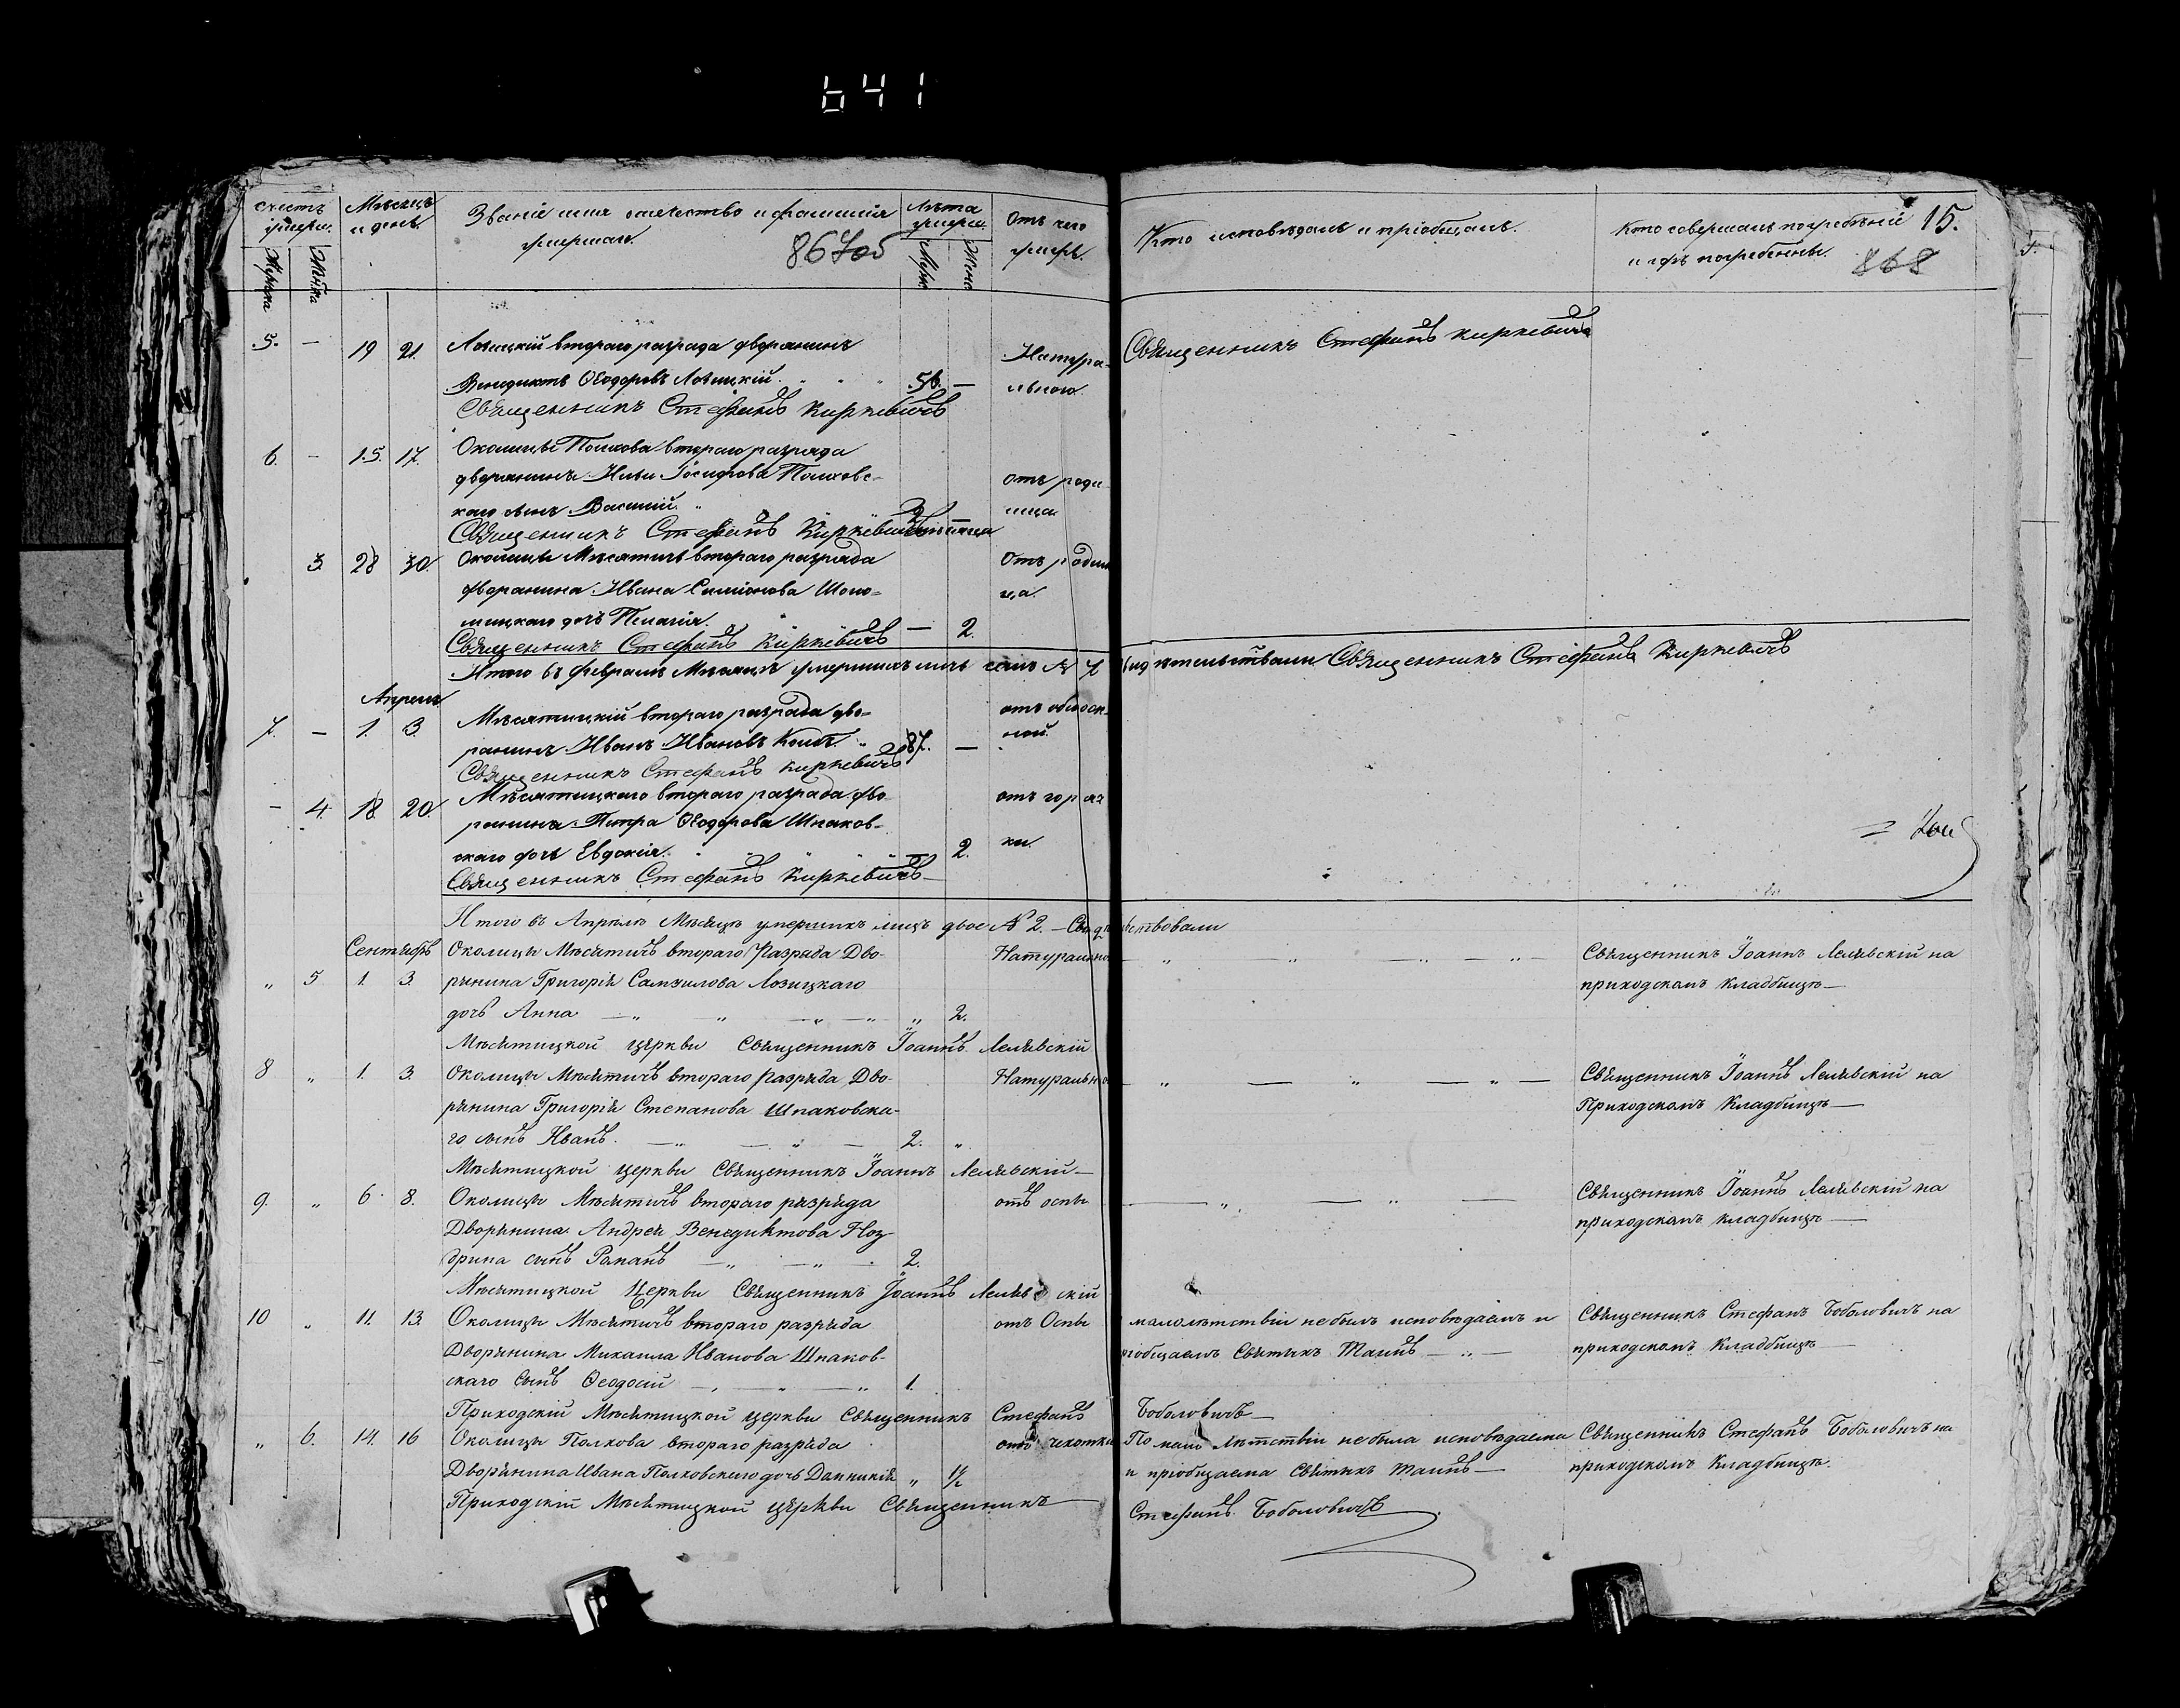 641
счетъ умерш.
Мужска
Женска
Мѣсяцъ и день.
Званіе имя отечество и фамилія умершаго.
867об
Лѣта умерш.
Муж.
Женс
Отъ чего умеръ.
Кто исповѣдалъ и пріобщалъ.
Кто совершалъ погребеніе и гдѣ погребенны.
15.
868
5. — 19 21. Лозицкій втораго разряда дворянинъ
Венедиктъ Ѳеодоровъ Лозицкій. 56. — Натуральною
Священникъ Стефанъ Киркевичъ
Священникъ Стефанъ Киркевичъ
6. — 15. 17. Околицы Полкова втораго разряда
дворянина Ильи Іосифова Полковс-
каго сынъ Василій. отъ родимца
Священникъ Стефанъ Киркевичъ
3. 28 30. Околицы Мѣсятичъ втораго разряда
дворянина Ивана Симіонова Шоло-
мицкаго дочь Пелагія. — 2. Отъ родимца.
Священникъ Стефанъ Киркевичъ
Итого въ февралѣ Мѣсяцѣ умершихъ лицъ семь № 7 видѣтельствалъ Священникъ Стефанъ Киркевичъ
Апрель
7. — 1. 3. Мѣсятицкій втораго разряда дво-
рянинъ Иванъ Ивановъ 87. —
Священникъ Стефанъ Киркевичъ
— 4. 18. 20. Мѣсятицкаго втораго разряда дво-
рянина Петра Ѳеодорова Шпаков-
скаго дочь Евдокія. — 2. отъ горячки.
Священникъ Стефанъ Киркевичъ
Итого въ Апрѣлѣ Мѣсяцѣ умершихъ лицъ двое № 2. — Свидѣтельствовали
Сентябрь Околицы Мѣсятичъ втораго Разряда Дво- Натурально
„ 5 1. 3. рянина Григорія Самуилова Лозицкаго
дочь Анна „ 2.
Священникъ Іоаннъ Лелявскій на
приходскомъ Кладбищѣ—
Мѣсятицкой церкви Священникъ Іоаннъ Лелявскій
8 „ 1. 3. Околицы Мѣсятичъ втораго Разряда Дво- Натурально
рянина Григорія Степанова Шпаковска-
го сынъ Иванъ. 2. „
Священникъ Іоаннъ Лелявскій на
Приходскомъ Кладбищѣ—
Мѣсятицкой церкви Священникъ Іоаннъ Лелявскій—
9. „ 6. 8. Околицы Мѣсятичъ втораго разряда отъ оспы
Дворянина Андрея Венедиктова Ноз-
дрина сынъ Романъ 2.
Священникъ Іоаннъ Лелявскій на
приходскомъ кладбищѣ—
Мѣсятицкой Церкви Священникъ Іоаннъ Лелявскій
10 „ 11. 13. Околицы Мѣсятичъ втораго разряда отъ Оспы
Дворянина Михаила Иванова Шпаков-
скаго Сынъ Ѳеодосій 1.
малолѣтствіи небылъ исповѣдаемъ и
пріобщаемъ Святыхъ Таинъ
Священникъ Стефанъ Боболовичъ на
приходскомъ Кладбищѣ—
Приходскій Мѣсятицкой церкви Священникъ Стефанъ Боболовичъ—
„ 6. 14. 16 Околицы Полкова втораго разряда отъ чехотки
Дворянина Ивана Полковскаго дочь „ 1½
По мало лѣтствіи небыла исповѣдаема
и пріобщаема Святыхъ Таинъ—
Священникъ Стефанъ Боболовичъ на
приходскомъ Кладбищѣ.
Приходскій Мѣсятицкой церкви Священникъ Стефанъ Боболовичъ